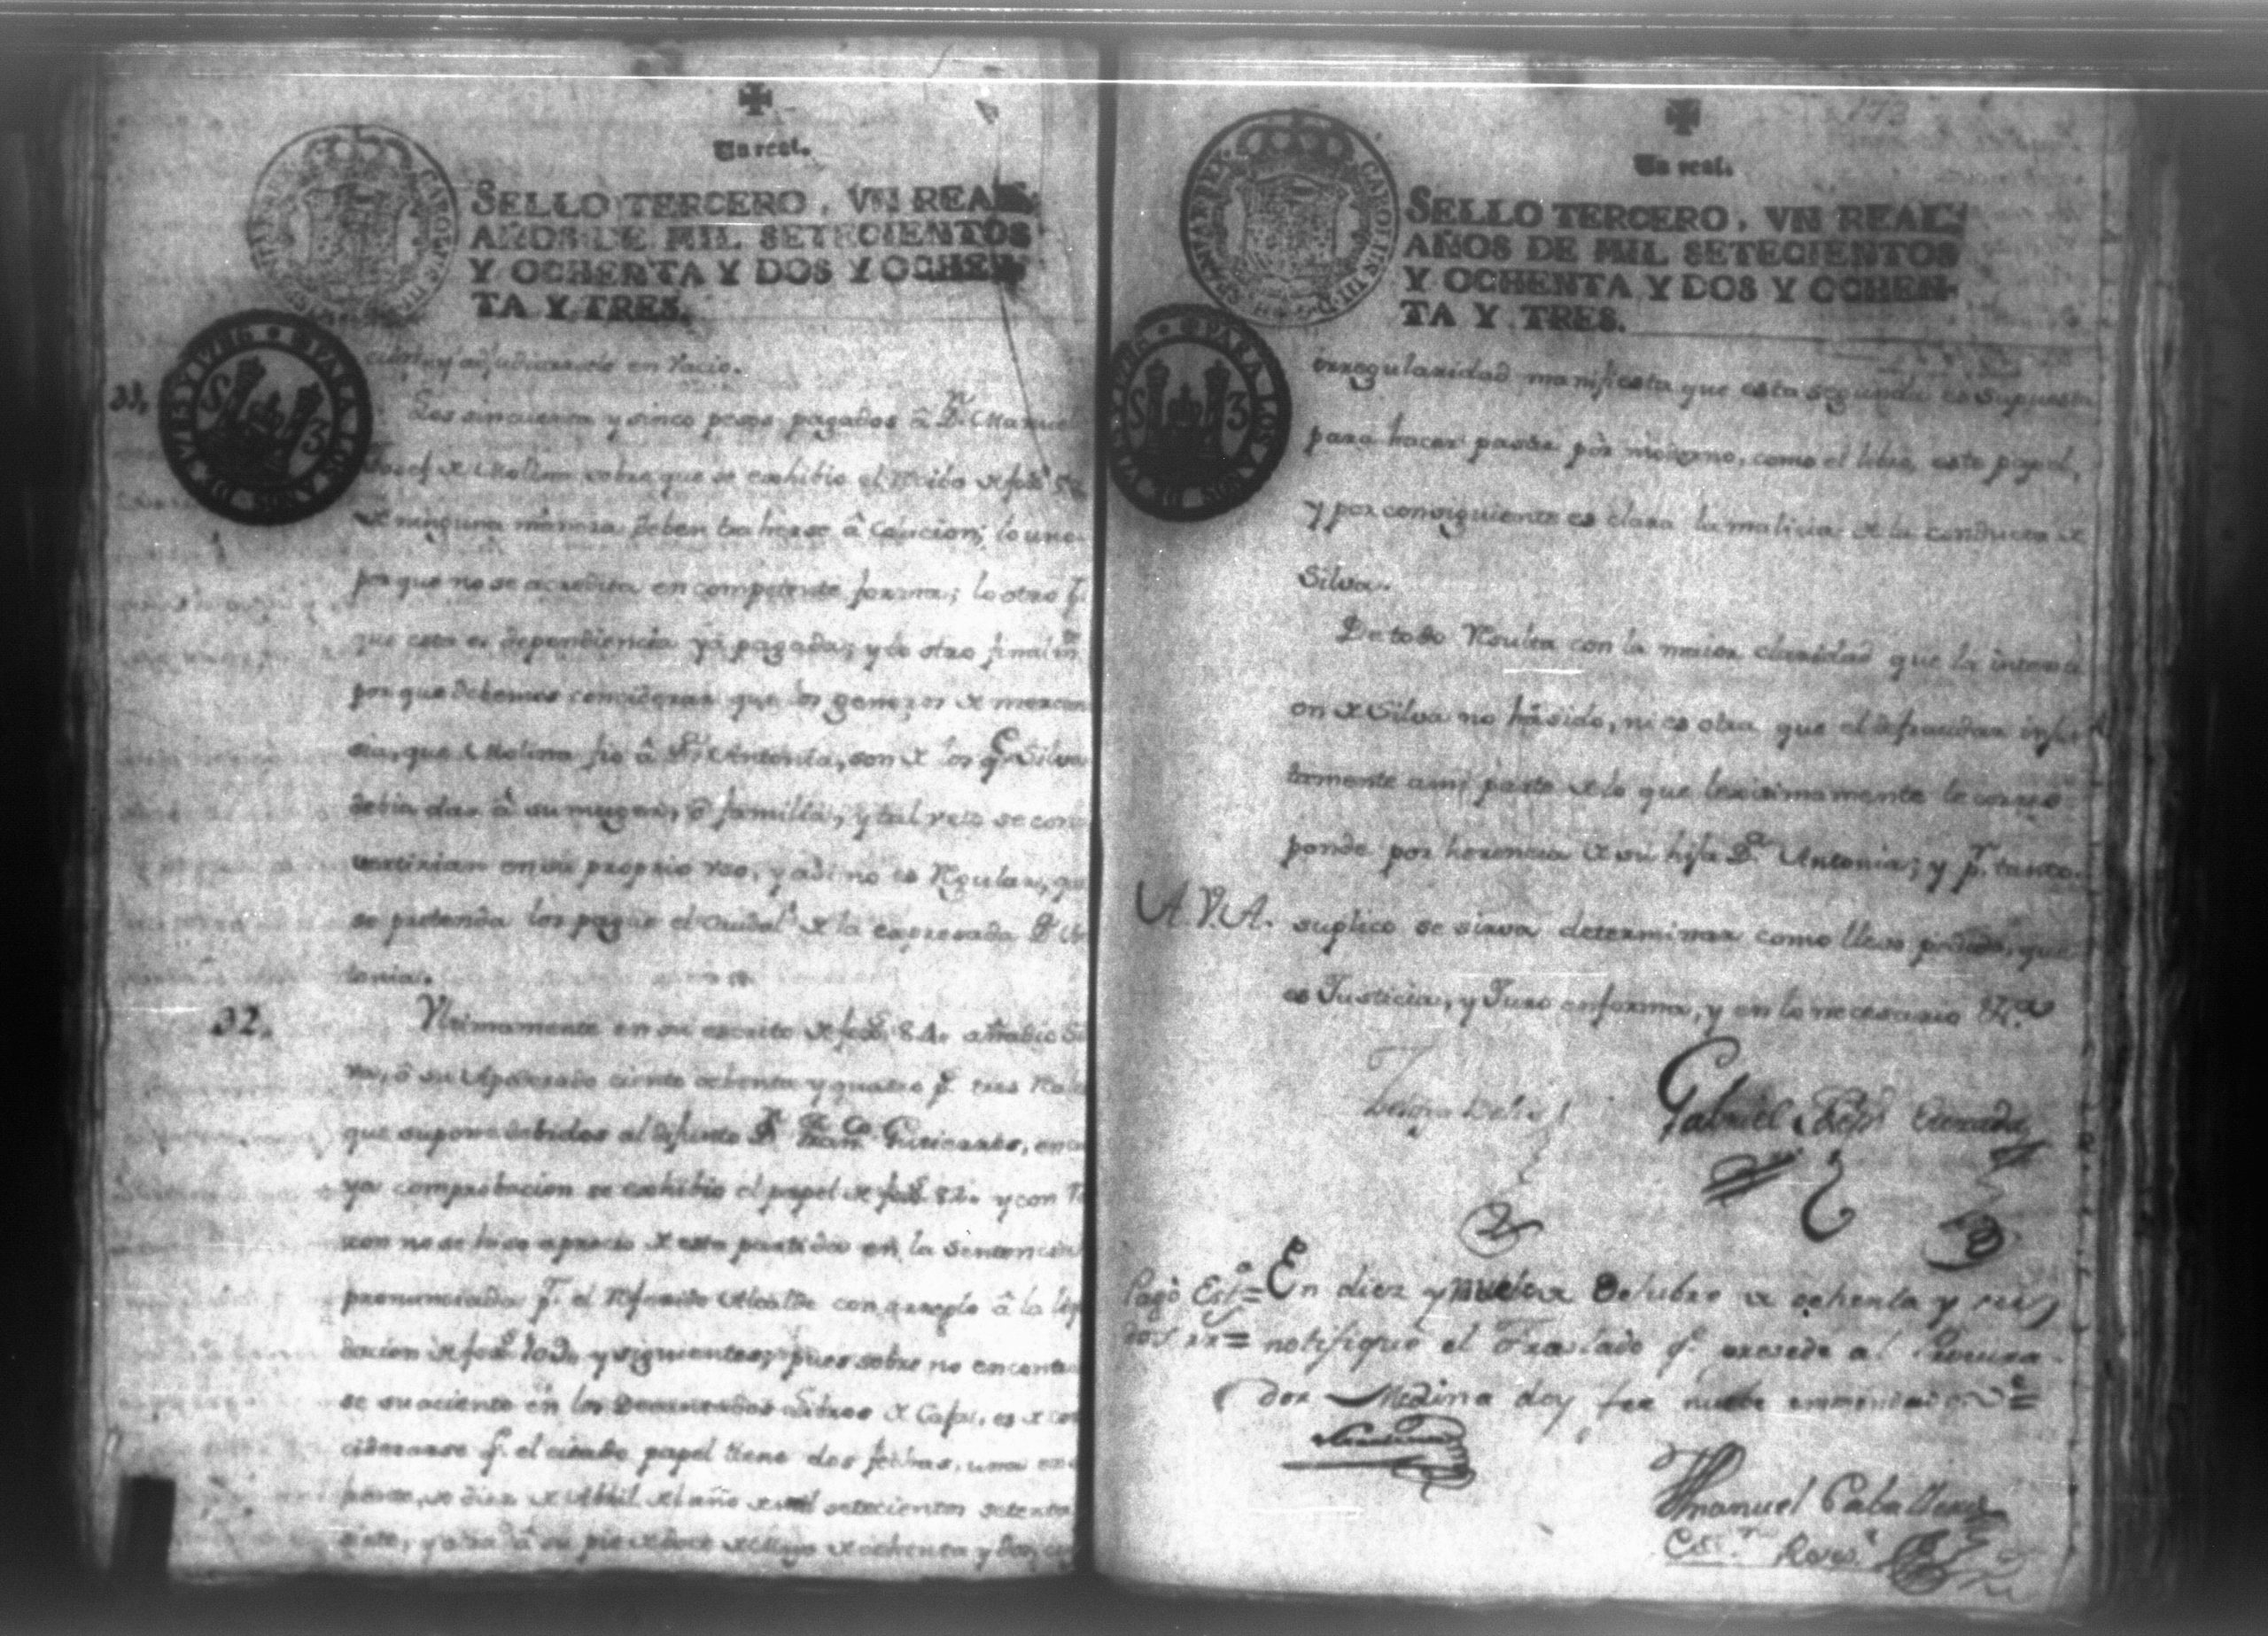 Un real.
SELLO TERCERO, VN REAL
AÑOS DE MIL SETECIENTOS
Y OCHENTA Y DOS Y OCHEN-
TA Y TRES.
y adjudicarsele en vacio.
Los sincuenta y sinco pesos pagados â D.n Manuel
Josef de Molina sobre que se exhibio el recibo de foxs
de ninguna manera deben traherse â colacion; lo uno
porque no se acredita en competente forma; lo otro p.r
que esta es dependiencia yá pagada; y lo otro finalm.te
por que debemos considerar que los generos de mercan
sia, que Molina fio â D.a Antonia, son de los q.e Silva
debia dar â su muger, ô familia, y tal vez se con
vertirian en su proprio uso, y asi no es Regular, que
se pretenda los pague el caudal de la expresada D.a An
tonia.
32. Ultimamente en su escrito de foxs 84. añadio Sil
va, ô su Apoderado ciento ochenta y quatro p.s tres Reales
que supone debidos al difunto D.n Fran.co Gutierrez, en cu
ya comprobacion se exhibio el papel de foxs 82. y con Ra
zon no se hiso aprecio de esta partida en la sentencia
pronunciada p.r el Referido Alcalde con arreglo â la liqui
dacion de foxs y siguientes; pues sobre no encontrar
se su aciento en los Libros de Caja, es de con
ciderarse q.e el citado papel tiene dos fechas, una
de diez de Abril del año de mil setecientos setenta
y siete, y otra â su pie de doce de Mayo de ochenta y dos, cuya
173
Un real.
SELLO TERCERO, VN REAL
AÑOS DE MIL SETECIENTOS
Y OCHENTA Y DOS Y OCHEN-
TA Y TRES.
CAROLUS III D
PARA LOS AÑOS DE 1785 Y 1786
irregularidad manifiesta que esta segunda es supuesta
para hacer pasar por moderno, como el libro, este papel,
y por consiguiente es clara la malicia de la conducta de
Silva.
De todo Resulta con la maior claridad que la intenci
on de Silva no há sido, ni es otra que el defraudar
a mi parte de lo que lexitimamente le corres
ponde por herencia de su hija D.a Antonia; y p.r tanto.
A.V.A. suplico se sirva determinar como llevo pedido, que
es Justicia, y Juro en forma, y en lo necesario &.a
Gabriel
En diez y nueve de Octubre de ochenta y seis
notifiqué el Traslado q.e precede al Procura-
dor Medina doy fee
Manuel Caballero